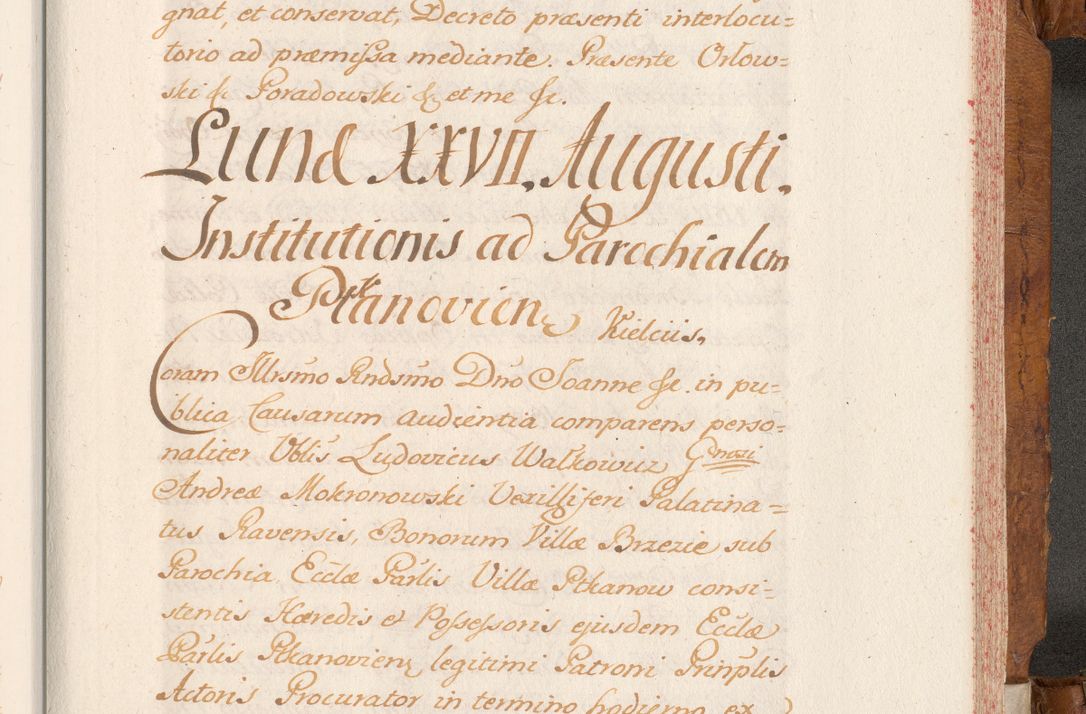 gnat, et conservat, Decreto præsenti interlocu=
torio ad præmissa mediante. Præsente Orłow=
ski &c Poradowski & et me &c.
Lunæ XXVII. Augusti.
Institutionis ad Parochialem
Ptkanovien, Kielciis.
Coram Illrsmo Rndsmo Dno Joanne &c. in pu=
blica Causarum audientia comparens perso=
naliter Nblis Ludovicus Walkowicz Gnosi
Andreæ Mokronowski Vexilliferi Palatina=
tus Ravensis, Bonorum Villæ Brzezie sub
Parochia Ecclæ Parlis Villæ Ptkanow consi=
stentis Hæredis et Possessoris ejusdem Ecclæ
Parlis Ptkanovien, legitimi Patroni Prinplis
Actoris Procurator in termino hodierno ex